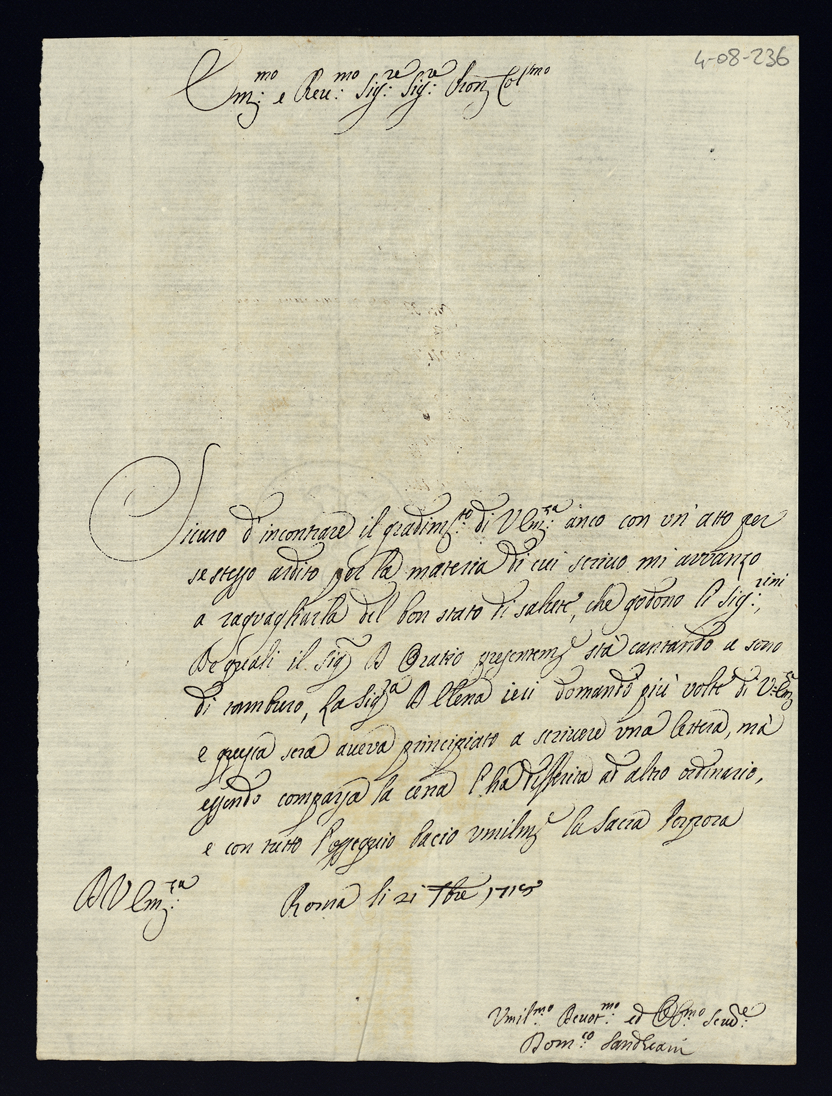 4-08-236
Em:mo e Reu:mo Sig:re Sig:re Pron Col:mo
Sicuro d'incontrare il gradim:to di V Em:za anco con un'atto per
se stesso ardito per la materia di cui scriuo mi auuanzo
a raguagliarla del bon stato di salute, che godono li Sig:rini,
De quali il Sig D Oratio presentem:e stà cantando a sono
di tamburo, La Sig:ra D Elena ieri domandò più volte di V Em:za
e questa sera aueua principiato a scriuere vna lettera, mà
essendo comparsa la cena l'ha differita ad altro ordinario,
e con tutto l'ossequio bacio vmilm:e la Sacra Porpora
D V Em:za
Roma li 21 7bre 1715
Vmil:mo Deuot:mo ed Obl:mo Seud:e
Dom:co